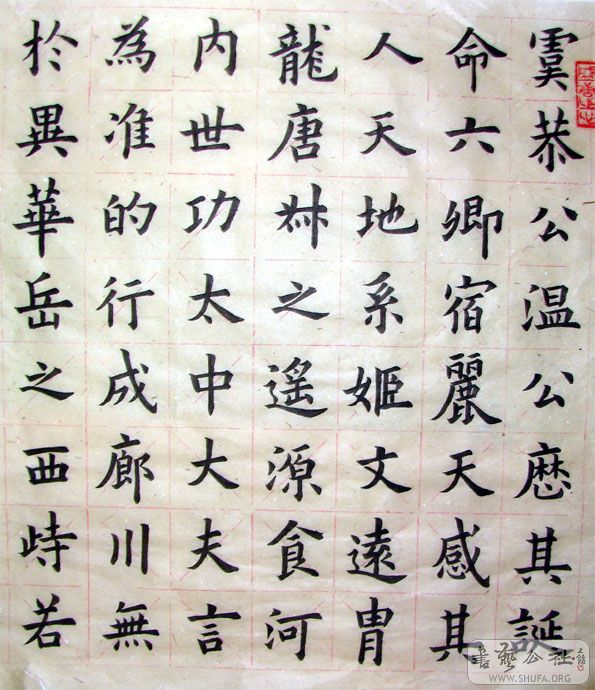 虞恭公温公厯其誕
命六卿宿麗天感其
人天地系姬文遠胄
龍唐叔之遙源食河
内世功太中大夫言
為准的行成廊川無
於異華岳之西峙若
書藝公社
WWW.SHUFA.ORG